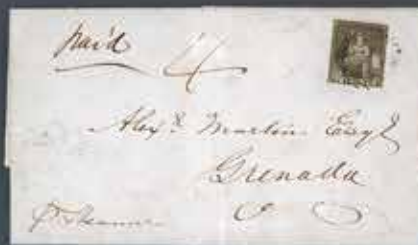 paid 4
Alexr Marlin Esqr
Grenada
pr Steamer